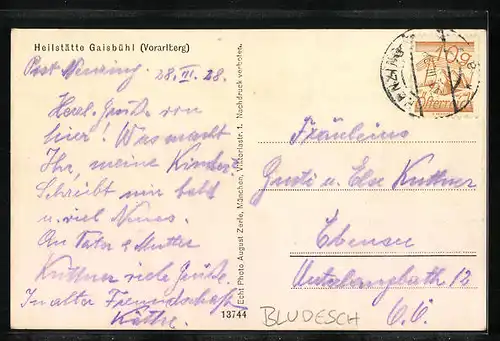 Heilstätte Gaisbühl (Vorarlberg)
Post Nenzing, 28. III. 28.
Herzl. Grüße von
hier! Was macht
Ihr, meine Kinder?
Schreibt mir bald
u. viel Neues.
An Vater & Mutter
Kuttner viele Grüße.
In alter Freundschaft
Käthe.
Echt Photo August Zerle, München, Viktoriastr. 1. Nachdruck verboten.
13744
NENZING
Österreich
Fräuleins
Gusti u. Else Kuttner
Ebensee
12
O.Ö.
BLUDESCH